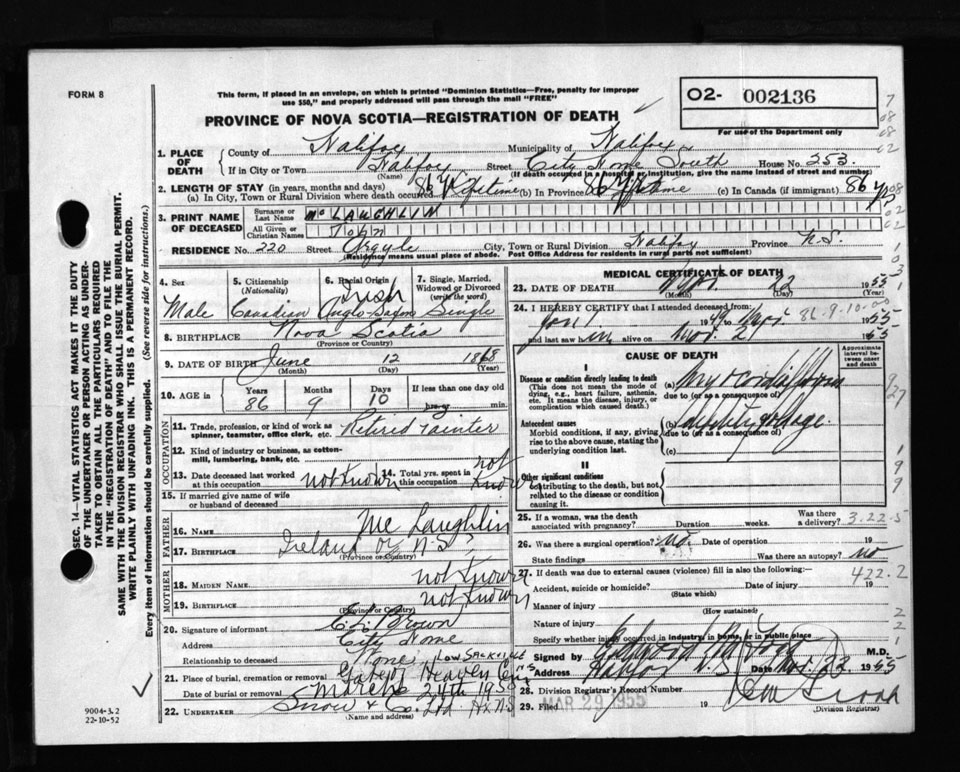 FORM 8
This form, if placed in an envelope, on which is printed "Dominion Statistics—Free, penalty for improper
use $50," and properly addressed will pass through the mail "FREE"
O2- 002136
For use of the Department only
PROVINCE OF NOVA SCOTIA—REGISTRATION OF DEATH
1. PLACE OF DEATH
County of Halifax Municipality of Halifax
If in City or Town Halifax Street City Home South House No. 353
(Name) (If death occurred in a hospital or institution, give the name instead of street and number)
2. LENGTH OF STAY (in years, months and days)
(a) In City, Town or Rural Division where death occurred 86 Y Lifetime (b) In Province 86 Y (c) In Canada (if immigrant) 86 yrs
3. PRINT NAME OF DECEASED
Surname or Last Name McLAUGHLIN
All Given or Christian Names John
RESIDENCE No. 220 Street Argyle City, Town or Rural Division Halifax Province N.S.
(Residence means usual place of abode. Post Office Address for residents in rural parts not sufficient)
4. Sex
Male
5. Citizenship (Nationality)
Canadian
6. Racial Origin
Irish
Anglo-Saxon
7. Single, Married, Widowed or Divorced (write the word)
Single
8. BIRTHPLACE Nova Scotia
(Province or Country)
9. DATE OF BIRTH June 12 1868
(Month) (Day) (Year)
10. AGE in
Years 86
Months 9
Days 10
If less than one day old
hrs. min.
OCCUPATION
11. Trade, profession, or kind of work as spinner, teamster, office clerk, etc. Retired Painter
12. Kind of industry or business, as cotton-mill, lumbering, bank, etc.
13. Date deceased last worked at this occupation not Known
14. Total yrs. spent in this occupation not Known
15. If married give name of wife or husband of deceased
FATHER
16. NAME Mc Laughlin
17. BIRTHPLACE Ireland or N.S ?
(Province or Country)
MOTHER
18. MAIDEN NAME not Known
19. BIRTHPLACE not Known
(Province or Country)
20. Signature of informant Brown
Address City Home
Relationship to deceased None
21. Place of burial, cremation or removal Gate of Heaven Cem LOW SACKVILLE N.S
Date of burial or removal March 24th 195
22. UNDERTAKER Snow & Co. Ltd Hx N.S
(Name and address)
MEDICAL CERTIFICATE OF DEATH
23. DATE OF DEATH 22 1955
(Month) (Day) (Year)
24. I HEREBY CERTIFY that I attended deceased from:
Jan 1 1949 1955
and last saw him alive on 21 1955
86-9-10-
CAUSE OF DEATH
Approximate interval between onset and death
I
Disease or condition directly leading to death
(This does not mean the mode of dying, e.g., heart failure, asthenia, etc. It means the disease, injury, or complication which caused death.)
(a)
due to (or as a consequence of)
Antecedent causes
Morbid conditions, if any, giving rise to the above cause, stating the underlying condition last.
(b)
due to (or as a consequence of)
(c)
II
Other significant conditions
contributing to the death, but not related to the disease or condition causing it.
25. If a woman, was the death associated with pregnancy? Duration weeks. Was there a delivery?
3.22.5
26. Was there a surgical operation? no. Date of operation 19
State findings Was there an autopsy? no
27. If death was due to external causes (violence) fill in also the following:—
Accident, suicide or homicide? Date of injury 19
(State which)
422.2
Manner of injury
(How sustained)
Nature of injury
Specify whether injury occurred in industry, in home, or in public place
Signed by M.D.
Address Halifax N.S Date 23 1955
28. Division Registrar's Record Number
29. Filed MAR 29 1955 19
(Division Registrar)
SEC. 14—VITAL STATISTICS ACT MAKES IT THE DUTY
OF THE UNDERTAKER OR PERSON ACTING AS UNDER-
TAKER TO OBTAIN ALL THE PARTICULARS REQUIRED
IN THE "REGISTRATION OF DEATH" AND TO FILE THE
SAME WITH THE DIVISION REGISTRAR WHO SHALL ISSUE THE BURIAL PERMIT.
WRITE PLAINLY WITH UNFADING INK. THIS IS A PERMANENT RECORD.
Every item of information should be carefully supplied. (See reverse side for instructions.)
9004-3.2
22-10-52